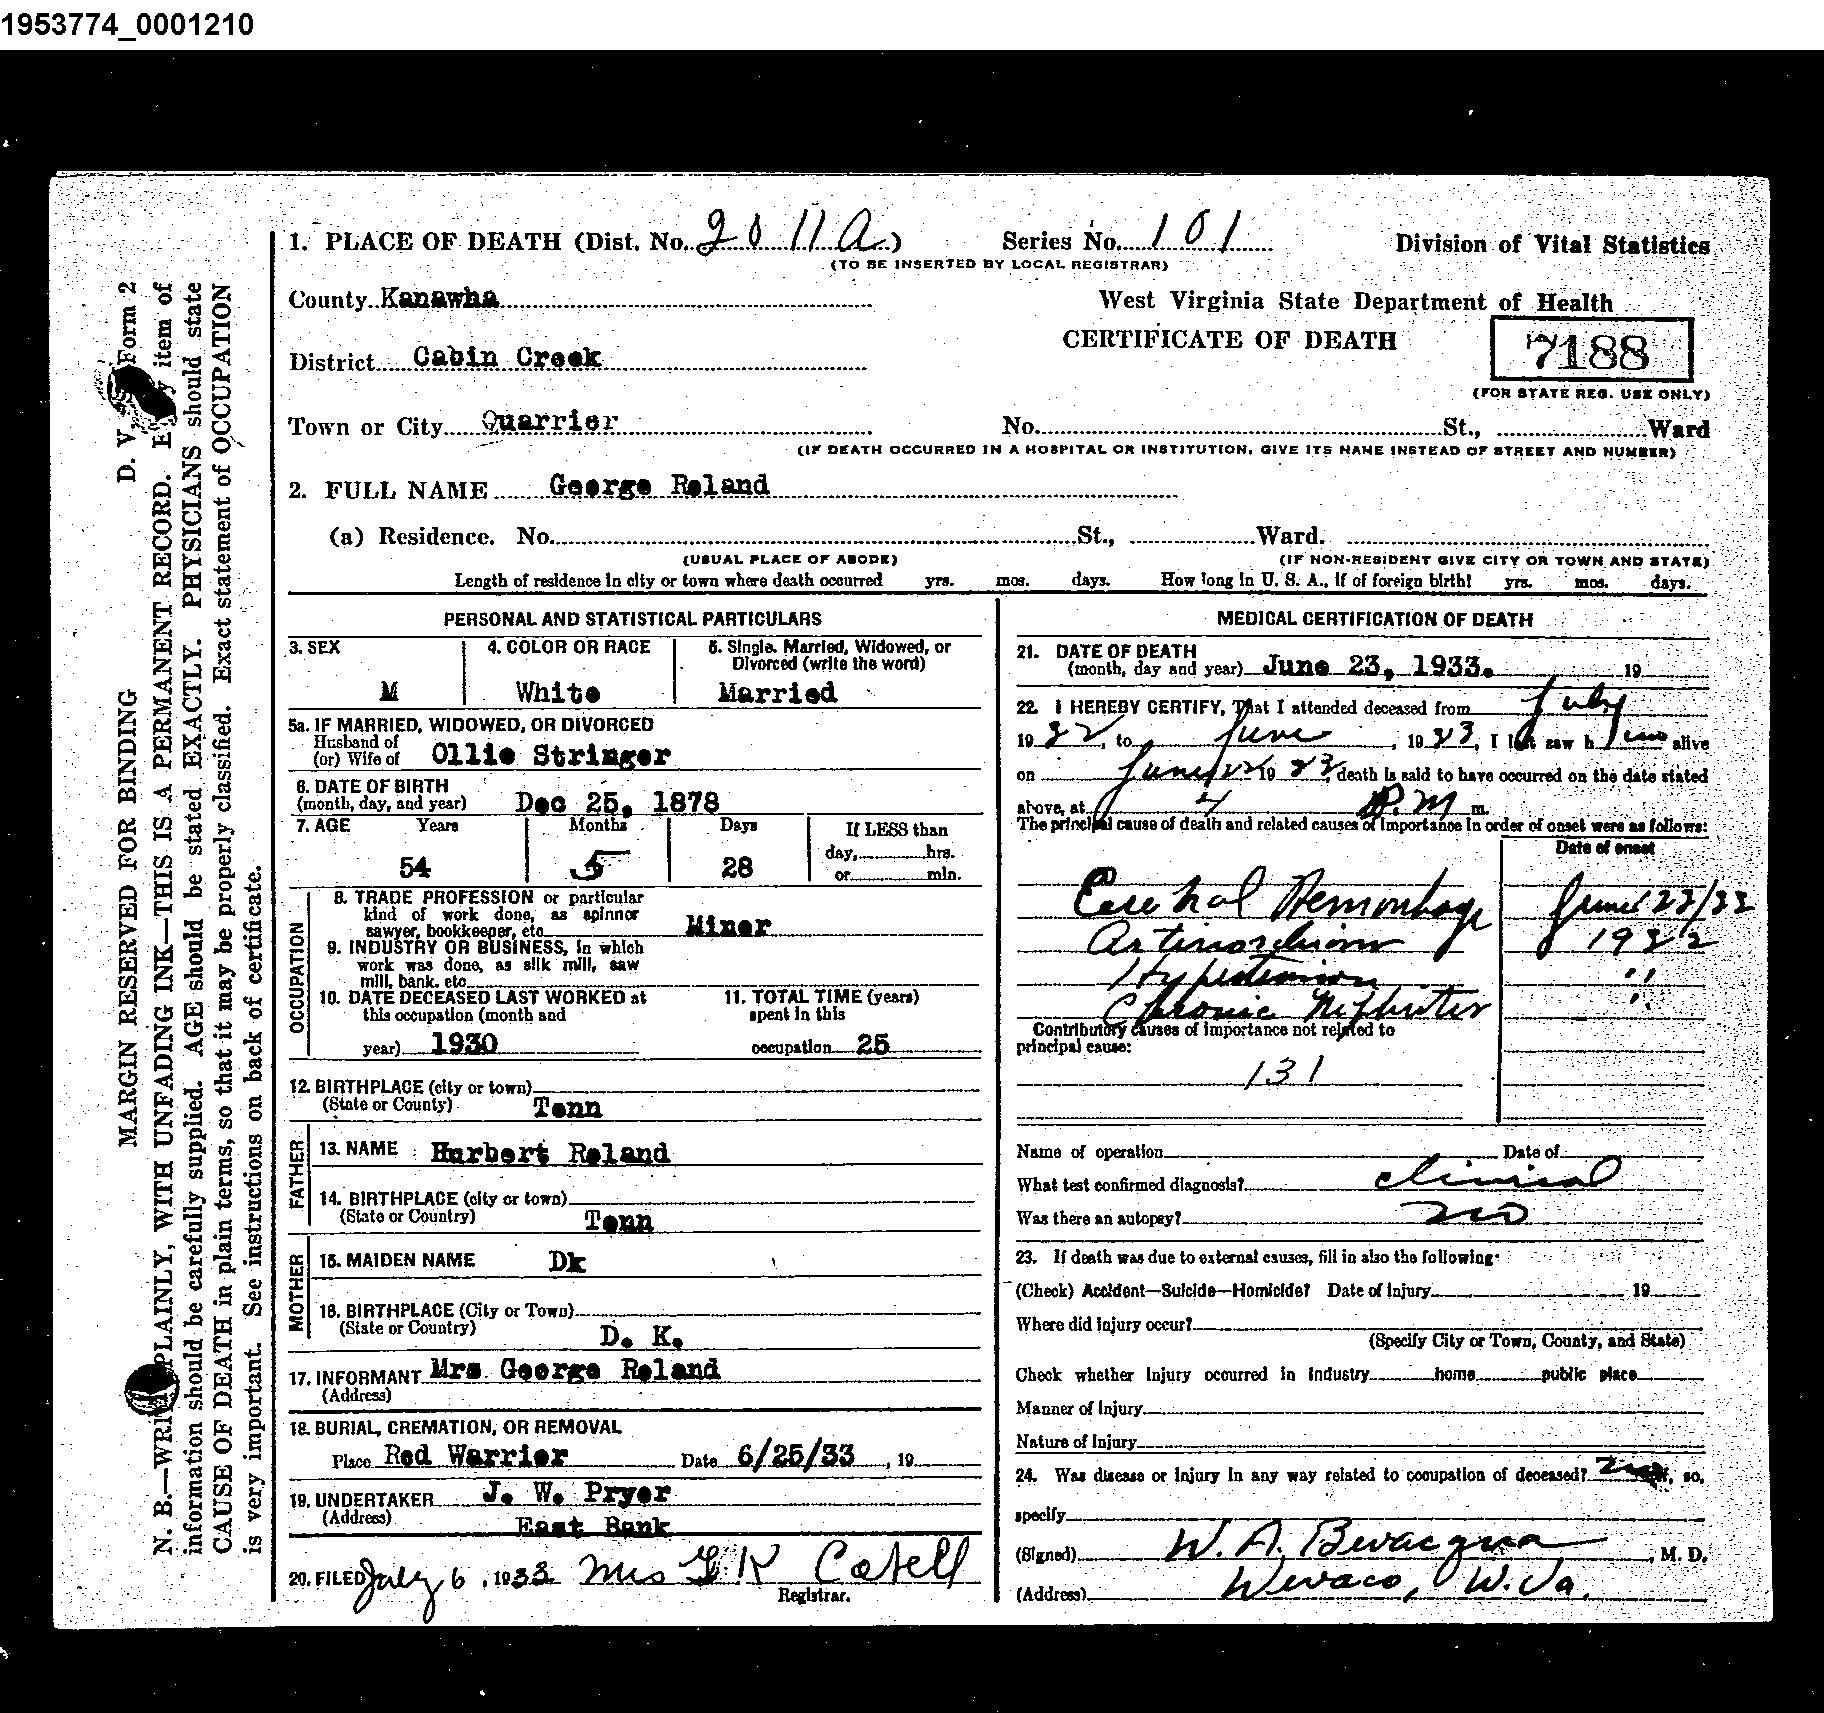 1953774_0001210
MARGIN RESERVED FOR BINDING D. V. Form 2
N. B.—WRITE PLAINLY, WITH UNFADING INK—THIS IS A PERMANENT RECORD. Every item of
information should be carefully supplied. AGE should be stated EXACTLY. PHYSICIANS should state
CAUSE OF DEATH in plain terms, so that it may be properly classified. Exact statement of OCCUPATION
is very important. See instructions on back of certificate.
1. PLACE OF DEATH (Dist. No. 2011A) Series No. 101 Division of Vital Statistics
(TO BE INSERTED BY LOCAL REGISTRAR)
County Kanawha West Virginia State Department of Health
CERTIFICATE OF DEATH 7188
District Cabin Creek
(FOR STATE REG. USE ONLY)
Town or City Quarrier No. St., Ward
(IF DEATH OCCURRED IN A HOSPITAL OR INSTITUTION, GIVE ITS NAME INSTEAD OF STREET AND NUMBER)
2. FULL NAME George Roland
(a) Residence. No. St., Ward.
(USUAL PLACE OF ABODE) (IF NON-RESIDENT GIVE CITY OR TOWN AND STATE)
Length of residence in city or town where death occurred yrs. mos. days. How long in U. S. A., if of foreign birth? yrs. mos. days.
PERSONAL AND STATISTICAL PARTICULARS
3. SEX 4. COLOR OR RACE 5. Single, Married, Widowed, or
Divorced (write the word)
M White Married
5a. IF MARRIED, WIDOWED, OR DIVORCED
Husband of
(or) Wife of Ollie Stringer
6. DATE OF BIRTH
(month, day, and year) Dec 25, 1878
7. AGE Years Months Days If LESS than
day, hrs.
54 5 28
or min.
OCCUPATION
8. TRADE PROFESSION or particular
kind of work done, as spinner
sawyer, bookkeeper, etc. Miner
9. INDUSTRY OR BUSINESS, in which
work was done, as silk mill, saw
mill, bank, etc.
10. DATE DECEASED LAST WORKED at 11. TOTAL TIME (years)
this occupation (month and spent in this
year) 1930 occupation 25
12. BIRTHPLACE (city or town)
(State or County) Tenn
FATHER
13. NAME Hurbert Roland
14. BIRTHPLACE (city or town)
(State or Country) Tenn
MOTHER
15. MAIDEN NAME Dk
16. BIRTHPLACE (City or Town)
(State or Country) D. K.
17. INFORMANT Mrs George Roland
(Address)
18. BURIAL, CREMATION, OR REMOVAL
Place Red Warrier Date 6/25/33, 19
19. UNDERTAKER J. W. Pryor
(Address) East Bank
20. FILED July 6, 1933 Mrs G K Catell
Registrar.
MEDICAL CERTIFICATION OF DEATH
21. DATE OF DEATH
(month, day and year) June 23, 1933. 19
22. I HEREBY CERTIFY, That I attended deceased from July
1932, to June, 1933, I last saw him alive
on June 22 1933, death is said to have occurred on the date stated
above, at 4 P.M m.
The principal cause of death and related causes of importance in order of onset were as follows:
Date of onset
Cerebral Hemorrhage June 23/33
1932
Hypertension "
Chronic "
Contributory causes of importance not related to
principal cause:
131
Name of operation Date of
What test confirmed diagnosis? clinical
Was there an autopsy? no
23. If death was due to external causes, fill in also the following:
(Check) Accident—Suicide—Homicide? Date of Injury 19
Where did injury occur?
(Specify City or Town, County, and State)
Check whether injury occurred in industry home public place
Manner of Injury
Nature of Injury
24. Was disease or injury in any way related to occupation of deceased? no If, so,
specify
(Signed) W. A. Bevacqua, M. D.
(Address) Wevaco, W. Va.